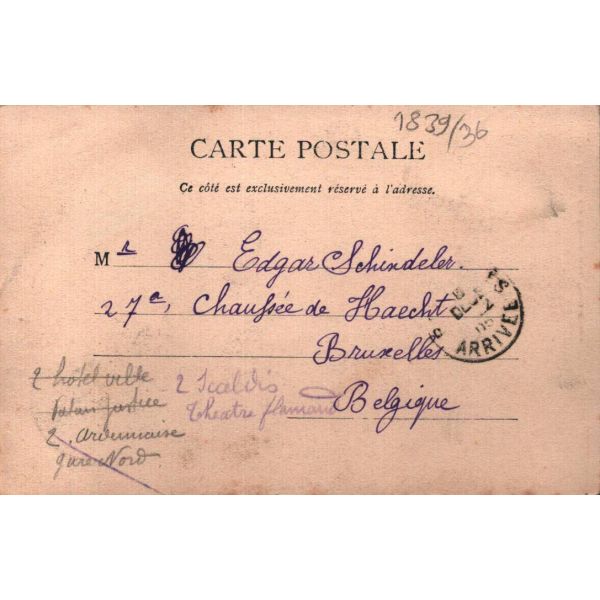 1839/36
CARTE POSTALE
Ce côté est exclusivement réservé à l'adresse.
Mr Edgar Schindeler.
27a, Chaussée de Haecht
Bruxelles
Belgique
ARRIVEE
2 hôtel ville
Palais justice
2. ardennaise
gare Nord.
2 Scaldis
theatre flamand